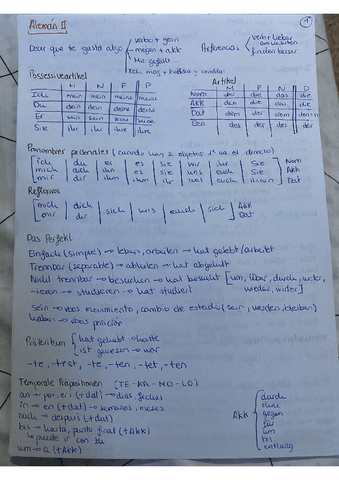 Alemán II
1
Decir que te gusta algo verbo + gern
mögen + Akk
Mir gefällt
Ich mag + bebida y comida
Preferencias verbo lieber
am liebsten
finden besser
Possessivartikel
M F N P
Ich mein mein meine
Du dein dein deine deine
Er sein sein seine seine
Sie ihr ihr ihre
Artikel
M F N P
Nom der die das die
Akk den die das die
Dat dem der dem den+n
Gen des der des der
Pronombres personales (cuando hay 2 objetos va el directo)
ich du er es Sie wir ihr Sie Nom
mich dich ihn es Sie uns euch Sie Akk
mir dir ihm ihm ihr uns euch ihnen Dat
Reflexivos
mich dich sich uns euch sich Akk
mir dir Dat
Das Perfekt
Einfach (simple) → leben, arbeiten → hat gelebt / arbeitet
Trennbar (separable) → abholen → hat abgeholt
Nicht trennbar → besuchen → hat besucht [um, über, durch, unter,
-ieren → studieren → hat studiert wieder, wider]
sein → vbos movimiento, cambio de estado (sein, werden, bleiben)
haben → vbos posición
Präteritum hat gehabt → hatte
ist gewesen → war
-te, -test, -te, -ten, -tet, -ten
Temporale Präpositionen (TE-KA-MO-LO)
an → por, en (+dat) → días, fechas
in → en (+dat) → semanas, meses
nach → después (+dat)
bis → hasta, punto final (+Akk)
→ puede ir con zu
um → a (+Akk)
Akk durch
gegen
für
um
bis
entlang